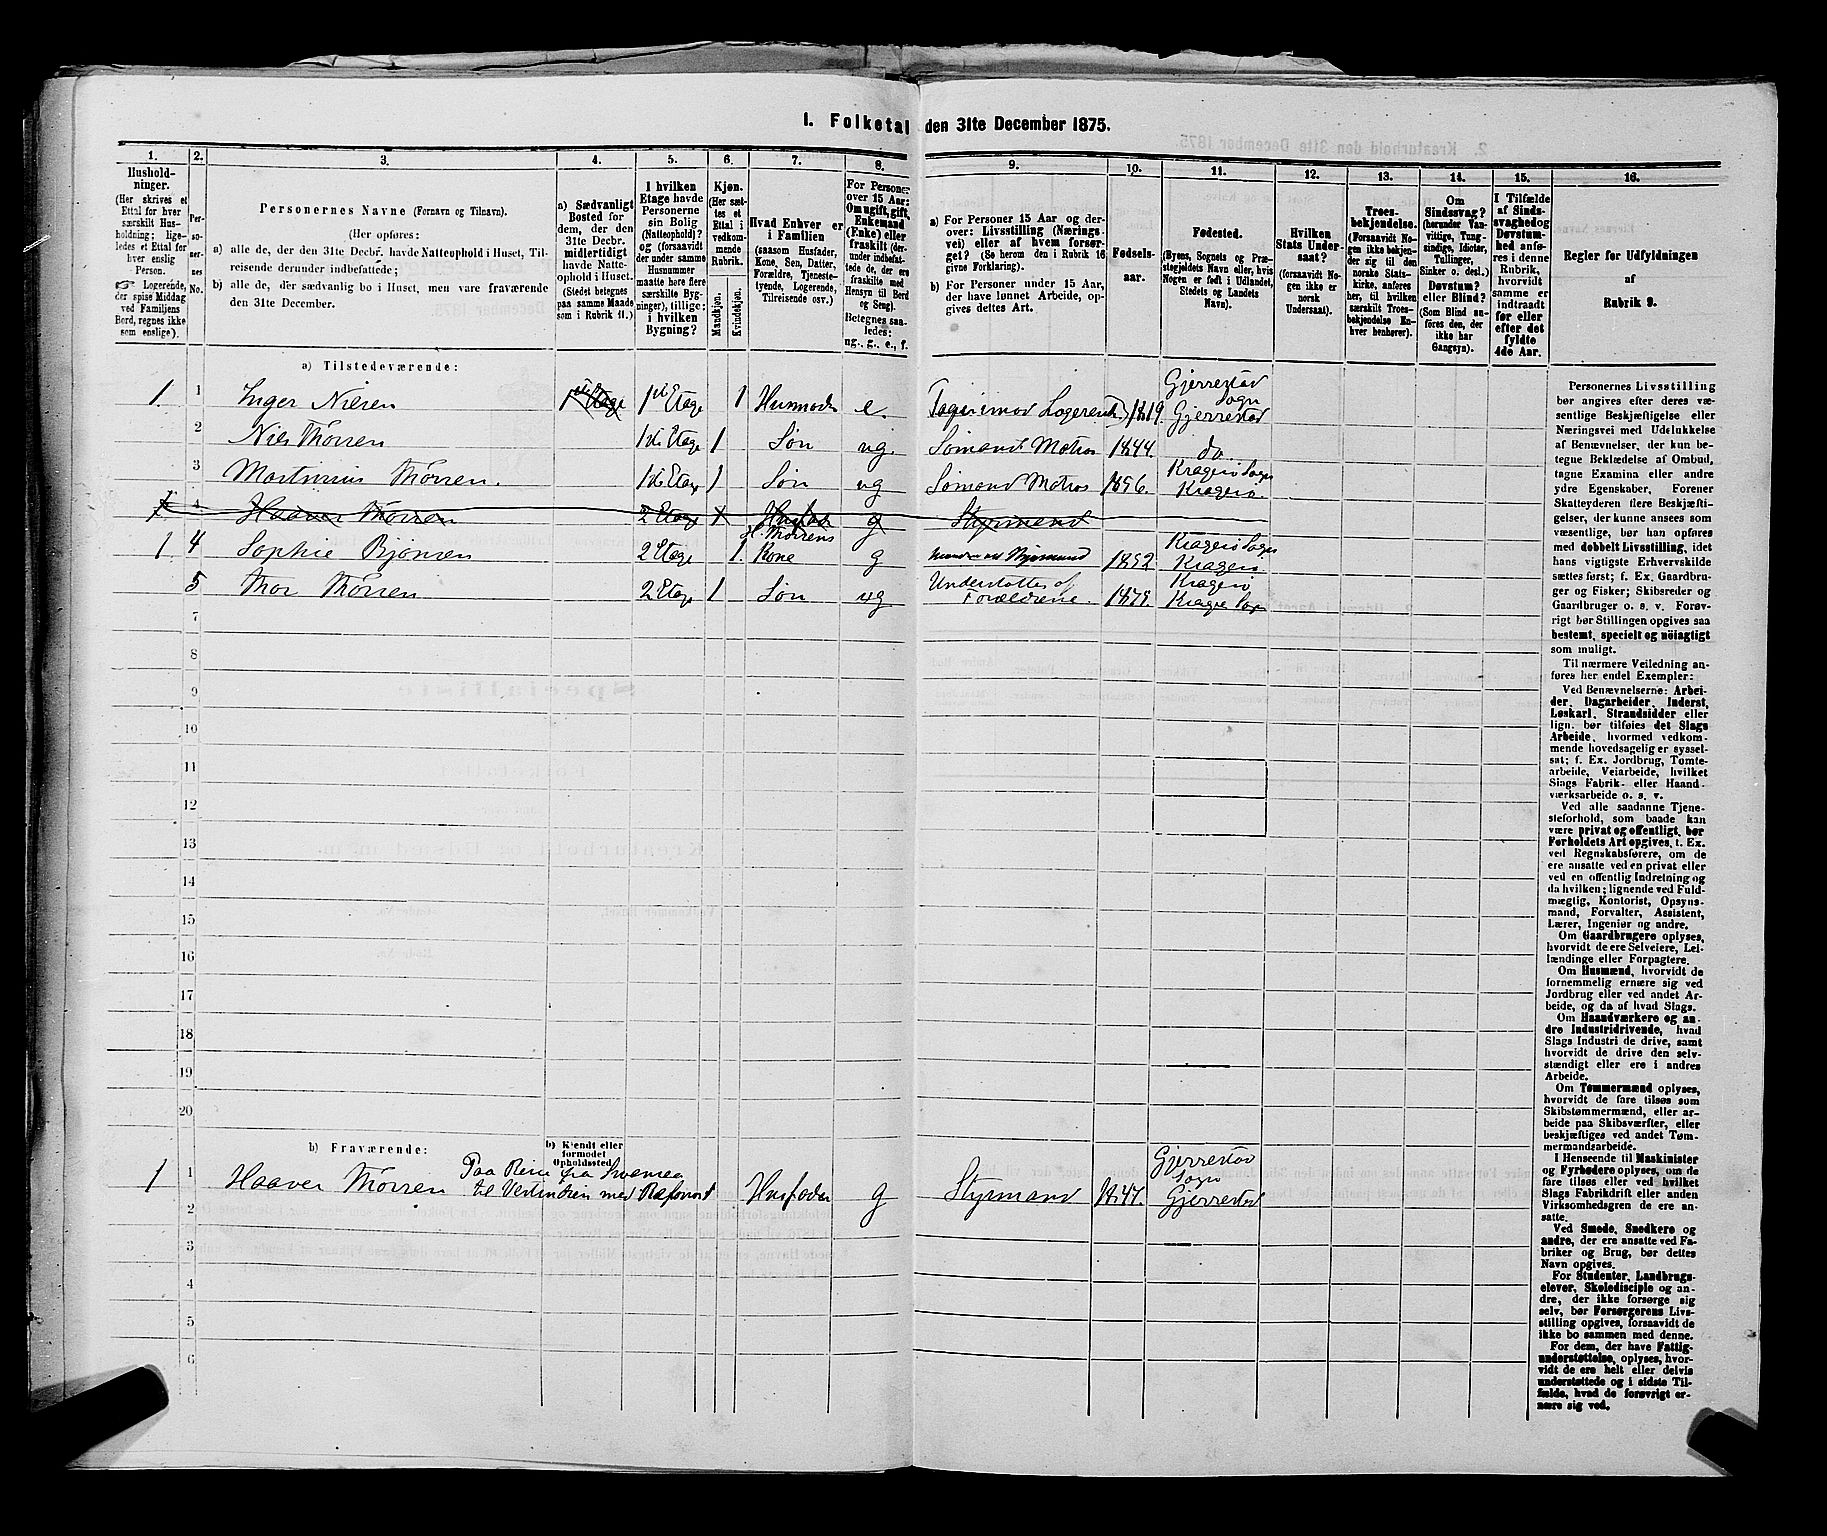 I. Folketal den 31te December 1875.
1.
2.
3.
4.
5.
6.
7.
8.
9.
10.
11.
12.
13.
14.
15.
16.
Hushold-
ninger.
(Her skrives et
Ettal for hver
særskilt Hus-
holdning; lige-
ledes et Ettal for
hver enslig
Person.
☞ Logerende,
der spise Middag
ved Familiens
Bord, regnes ikke
som enslige).
Per-
so-
ner-
nes
No.
Personernes Navne (Fornavn og Tilnavn).
(Her opføres:
a) alle de, der den 31te Decbr. havde Natteophold i Huset, Til-
reisende derunder indbefattede;
b) alle de, der sædvanlig bo i Huset, men vare fraværende
den 31te December.
a) Sædvanligt
Bosted for
dem, der den
31te Decbr.
midlertidigt
havde Natte-
ophold i Huset.
(Stedet betegnes
paa samme Maade
som i Rubrik 11.)
I hvilken
Etage havde
Personerne
sin Bolig
(Natteophold)?
og (forsaavidt
der under samme
Husnummer
maatte høre flere
særskilte Byg-
ninger), tillige:
i hvilken
Bygning?
Kjøn.
(Her sæt-
tes et
Ettal i
vedkom-
mende
Rubrik.
Mandkjøn.
Kvindekjøn.
Hvad Enhver er
i Familien
(saasom Husfader,
Kone, Søn, Datter,
Forældre, Tjeneste-
tyende, Logerende,
Tilreisende osv.)
For Personer
over 15 Aar:
Om ugift, gift,
Enkemand
(Enke) eller
fraskilt (der-
under indbefat-
tede de, der ere
fraskilte med
Hensyn til Bord
og Seng).
Betegnes saa-
ledes:
ug., g., e., f.
a) For Personer 15 Aar og der-
over: Livsstilling (Nærings-
vei) eller af hvem forsør-
get? (Se herom den i Rubrik 16
givne Forklaring).
b) For Personer under 15 Aar,
der have lønnet Arbeide, op-
gives dettes Art.
Fødsels-
aar.
Fødested.
(Byens, Sognets og Præ-
stegjeldets Navn eller, hvis
Nogen er født i Udlandet,
Stedets og Landets
Navn).
Hvilken
Stats Under-
saat?
(forsaavidt No-
gen ikke er
norsk
Undersaat).
Troes-
bekjendelse.
(Forsaavidt No-
gen ikke bekjen-
der sig til den
norske Stats-
kirke, anføres
her, til hvilken
særskilt Troes-
bekjendelse En-
hver henhører).
Om
Sindssvag?
(herunder Van-
vittige, Tung-
sindige, Idioter,
Tullinger,
Sinker o. desl.)
Døvstum?
eller Blind?
(Som Blind an-
føres den, der
ikke har
Gangsyn).
I Tilfælde
af Sinds-
svaghed og
Døvstum-
hed anfø-
res i denne
Rubrik,
hvorvidt
samme er
indtraadt
før eller
efter det
fyldte
4de Aar.
Regler for Udfyldningen
af
Rubrik 9.
a) Tilstedeværende:
1 1 Inger Nilsen 1ste Etage 1ste Etage 1 Husmoder e. Logerende 1819. Gjerrestad Sogn Gjerrestad
2 Niels Thorsen 1ste Etage 1 Søn ug. Sømand Matros 1844. do.
3 Martinius Thorsen. 1ste Etage 1 Søn ug Sømand Matros 1856. Kragerø Sogn Kragerø
1 4 Haaver Thorsen 2 Etage 1 Husfader g Styrmand
1 4 Sophie Bjørnsen 2 Etage 1. H. Thorsens Kone g 1852 Kragerø Sogn Kragerø
5 Thor Thorsen 2 Etage 1 Søn ug Understøttes af Forældrene. 1875. Kragerø Kragerø Sogn
7
8
9
10
11
12
13
14
15
16
17
18
19
20
b) Fraværende:
b) Kjendt eller
formodet
Opholdssted.
1 1 Haaver Thorsen Paa Reise fra Swansea til Vestindien med Husfader g Styrmand 1847. Gjerrestad Sogn Gjerrestad
2
3
4
5
6
Personernes Livsstilling
bør angives efter deres væ-
sentlige Beskjæftigelse eller
Næringsvei med Udelukkelse
af Benævnelser, der kun be-
tegne Beklædelse af Ombud,
tagne Examina eller andre
ydre Egenskaber. Forener
Skatteyderen flere Beskjæfti-
gelser, der kunne ansees som
væsentlige, bør han opføres
med dobbelt Livsstilling, idet
hans vigtigste Erhvervskilde
sættes først; f. Ex. Gaardbru-
ger og Fisker; Skibsreder og
Gaardbruger o. s. v. Forøv-
rigt bør Stillingen opgives saa
bestemt, specielt og nøiagtigt
som muligt.
Til nærmere Veiledning an-
føres her endel Exempler:
Ved Benævnelserne: Arbei-
der, Dagarbeider, Inderst,
Løskarl, Strandsidder eller
lign. bør tilføies det Slags
Arbeide, hvormed vedkom-
mende hovedsagelig er syssel-
sat; f. Ex. Jordbrug, Tomte-
arbeide, Veiarbeide, hvilket
Slags Fabrik- eller Haand-
værksarbeide o. s. v.
Ved alle saadanne Tjene-
steforhold, som baade kan
være privat og offentligt, bør
Forholdets Art opgives, f. Ex.
ved Regnskabsførere, om de
ere ansatte ved en privat eller
ved en offentlig Indretning og
da hvilken; lignende ved Fuld-
mægtig, Kontorist, Opsyns-
mand, Forvalter, Assistent,
Lærer, Ingeniør og andre.
Om Gaardbrugere oplyses,
hvorvidt de ere Selveiere, Lei-
lændinge eller Forpagtere.
Om Husmænd, hvorvidt de
fornemmelig ernære sig ved
Jordbrug eller ved andet Ar-
beide, og da af hvad Slags.
Om Haandværkere og an-
dre Industridrivende, hvad
Slags Industri de drive, samt
hvorvidt de drive den selv-
stændigt eller ere i andres
Arbeide.
Om Tømmermænd oplyses,
hvorvidt de fare tilsøs som
Skibstømmermænd, eller ar-
beide paa Skibsværfter, eller
beskjæftiges ved andet Tøm-
mermandsarbeide.
I Henseende til Maskinister
og Fyrbødere oplyses, om de
fare tilsøs eller ved hvilket
Slags Fabrikdrift eller anden
Virksomhedsgren de ere an-
satte.
Ved Smede, Snedkere og
andre, der ere ansatte ved Fa-
briker og Brug, bør dettes
Navn opgives.
For Studenter, Landbrugs-
elever, Skoledisciple og an-
dre, der ikke forsørge sig
selv, bør Forsørgerens Livs-
stilling opgives, forsaavidt de
ikke bo sammen med denne.
For dem, der have Fattig-
understøttelse, oplyses, hvor-
vidt de ere helt eller delvis
understøttede og i sidste Til-
fælde, hvad de forøvrigt er-
nære sig ved.